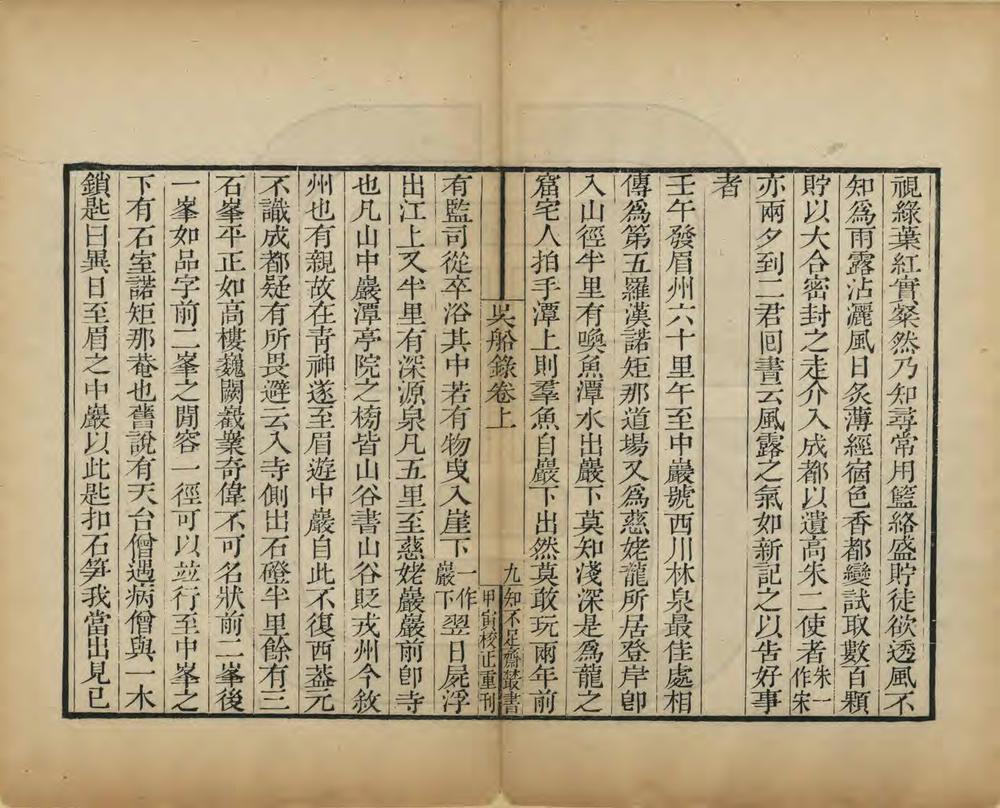 視綠葉紅實粲然乃知尋常用籃絡盛貯徒欲透風不
知爲雨露沾灑風日炙薄經宿色香都變試取數百顆
貯以大合密封之走介入成都以遺高朱二使者朱一作宋
亦兩夕到二君囘書云風露之氣如新記之以告好事
者
壬午發眉州六十里午至中巖號西川林泉最佳處相
傳爲第五羅漢諾矩那道場又爲慈姥龍所居登岸卽
入山徑半里有喚魚潭水出巖下莫知淺深是爲龍之
窟宅人拍手潭上則羣魚自巖下出然莫敢玩兩年前
吳船錄卷上
九
知不足齋叢書
甲寅校正重刊
有監司從卒浴其中若有物曳入崖下一作巖下翌日屍浮
出江上又半里有深源泉凡五里至慈姥巖巖前卽寺
也凡山中巖潭亭院之榜皆山谷書山谷貶戎州今敘
州也有親故在青神遂至眉遊中巖自此不復西蓋元
不識成都疑有所畏避云入寺側出石磴半里餘有三
石峯平正如高樓巍闕觀巢奇偉不可名狀前二峯後
一峯如品字前二峯之閒容一徑可以並行至中峯之
下有石室諾矩那菴也舊說有天台僧遇病僧與一木
鎖匙曰異日至眉之中巖以此匙扣石笋我當出見已